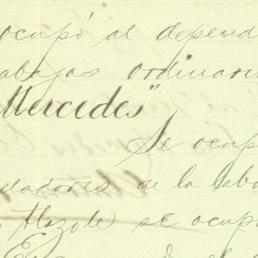 ocupó al depend
abajos ordinari
Mercedes"
Se ocup
dadores de la labo
Hazote se ocup